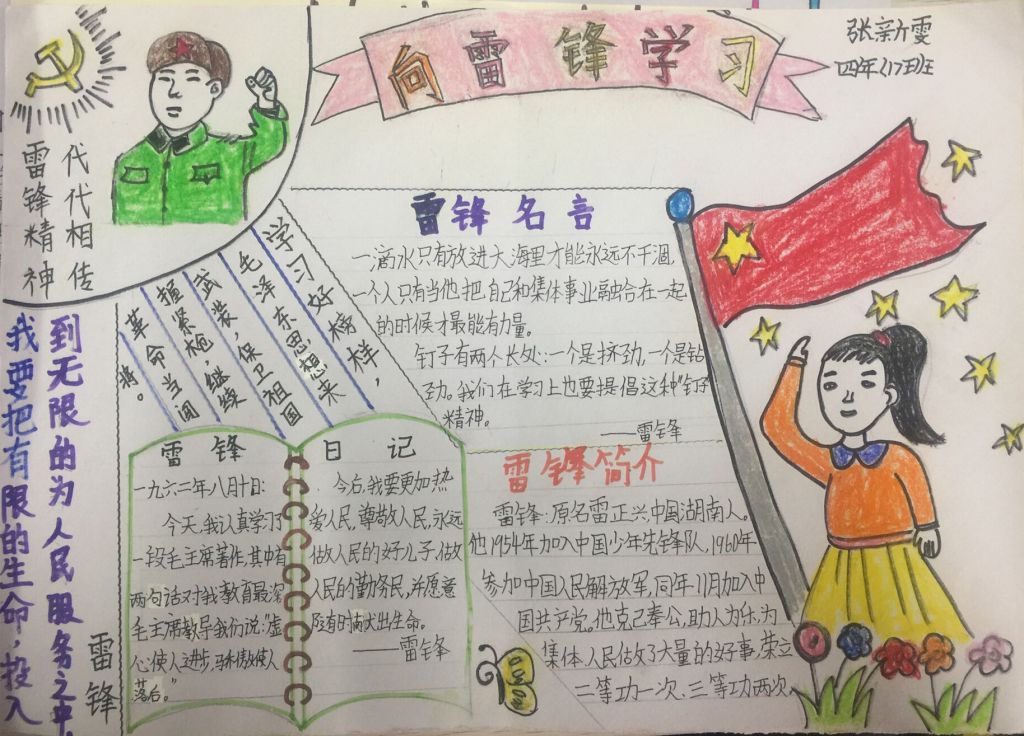 向雷锋学习
张新雯
四年(17)班
代代相传
雷锋精神
学习好榜样，
毛泽东思想来
武装，保卫祖国
握紧枪，继续
革命当闯
将。
我要把有限的生命，投入
到无限的为人民服务之中，
雷锋
雷锋名言
一滴水只有放进大海里才能永远不干涸，
一个人只有当他把自己和集体事业融合在一起
的时候才最能有力量。
钉子有两个长处：一个是挤劲，一个是钻
劲。我们在学习上也要提倡这种"钉子"
精神。
——雷锋
雷锋日记
一九六二年八月十日：
今天，我认真学习了
一段毛主席著作，其中有
两句话对我教育最深
毛主席教导我们说："虚
心使人进步，骄傲使人
落后。"
今后，我要更加热
爱人民，尊敬人民，永远
做人民的好儿子，做
人民的勤务民，并愿意
随时献出生命。
——雷锋
雷锋简介
雷锋：原名雷正兴，中国湖南人。
他1954年加入中国少年先锋队，1960年
参加中国人民解放军，同年11月加入中
国共产党。他克己奉公，助人为乐，为
集体、人民做了大量的好事，荣立
二等功一次、三等功两次